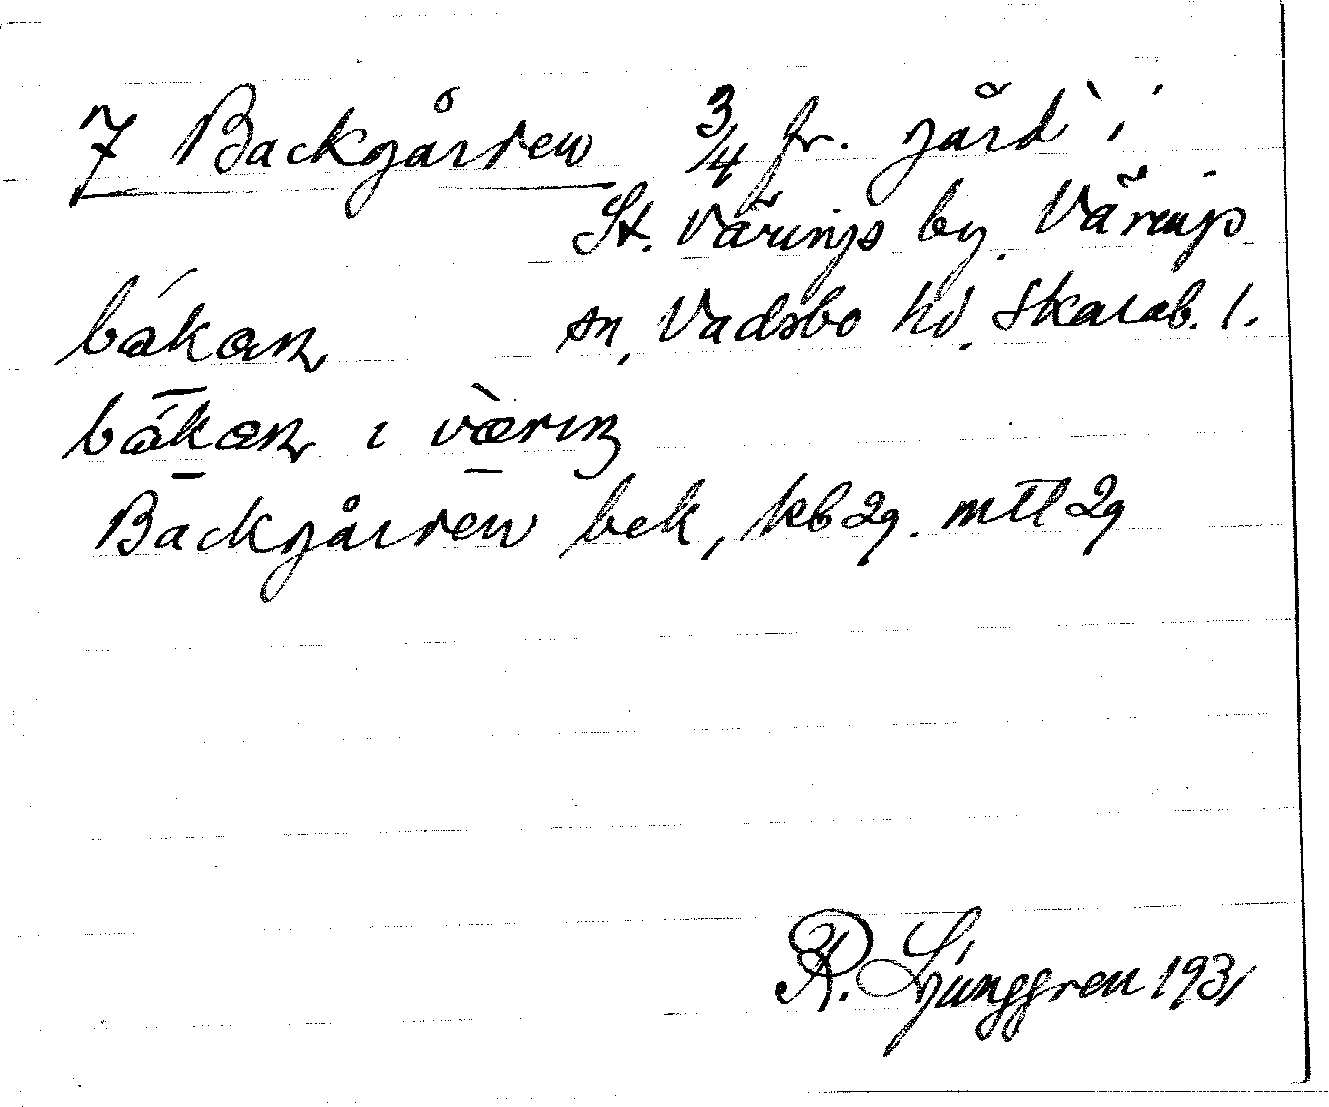 7 Backgården 3/4 fr. gård i
St. Värings by. Värings
bákan sn, Vadsbo hd. Skarab. l.
bákan i væring
Backgården bek, kb 29. mtl 29
R. Ljunggren 1931